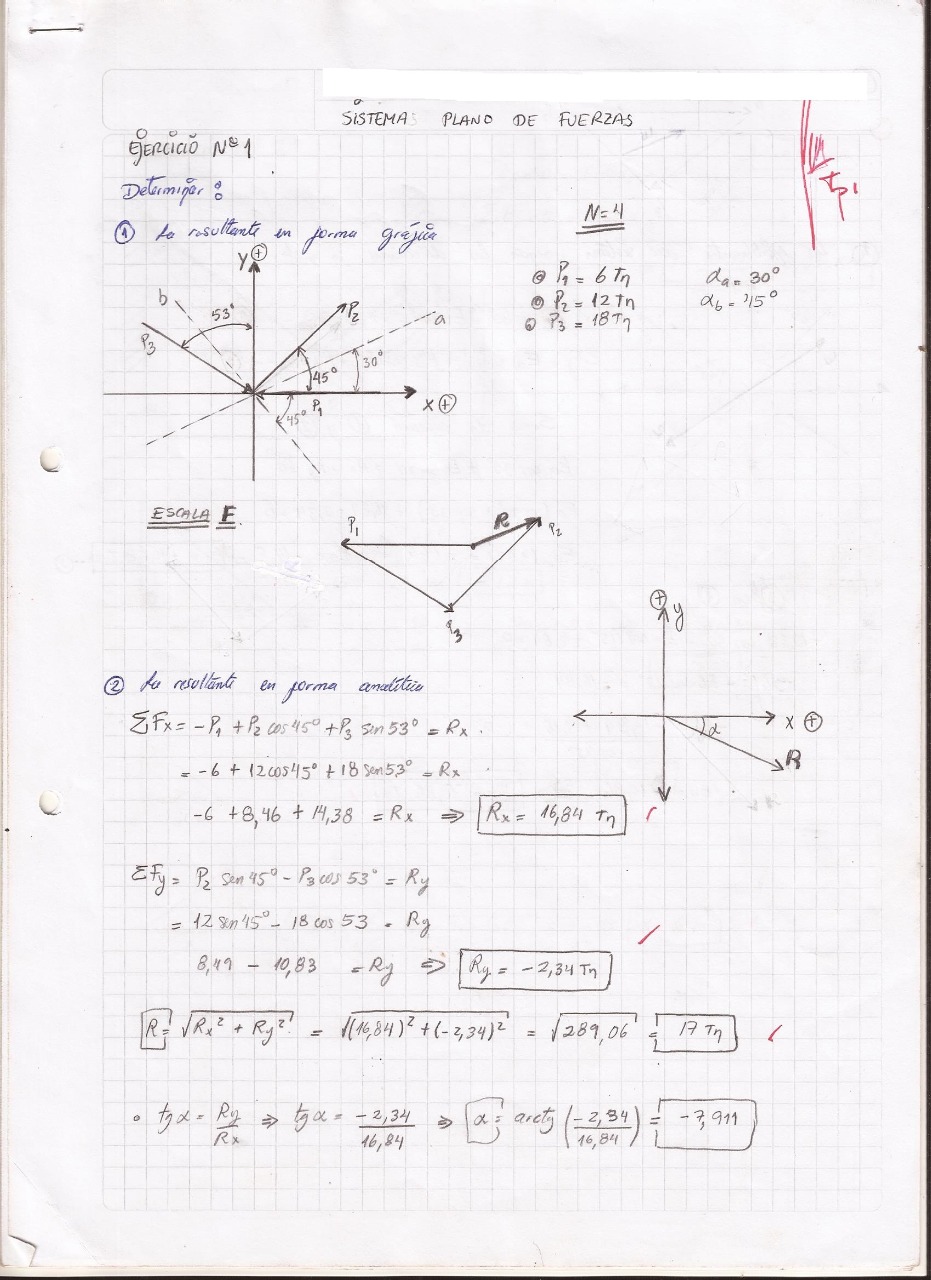 SISTEMAS PLANO DE FUERZAS
EJERCICIO Nº 1
Determinar:
① La resultante en forma gráfica
N=4
P1 = 6 Tn
αa = 30°
P2 = 12 Tn
αb = 45°
P3 = 18 Tn
y ⊕
b
53°
P2
a
P3
30°
45°
P1
x ⊕
45°
ESCALA F.
P1
R
P2
P3
⊕
y
x ⊕
α
R
② La resultante en forma analítica
ΣFx = -P1 + P2 cos 45° + P3 sen 53° = Rx
= -6 + 12 cos 45° + 18 sen 53° = Rx
-6 + 8,46 + 14,38 = Rx ⇒ Rx = 16,84 Tn
ΣFy = P2 sen 45° - P3 cos 53° = Ry
= 12 sen 45° - 18 cos 53 = Ry
8,49 - 10,83 = Ry ⇒ Ry = -2,34 Tn
R = √Rx² + Ry² = √(16,84)² + (-2,34)² = √289,06 = 17 Tn
tg α = Ry/Rx ⇒ tg α = -2,34/16,84 ⇒ α = arctg (-2,34/16,84) = -7,911